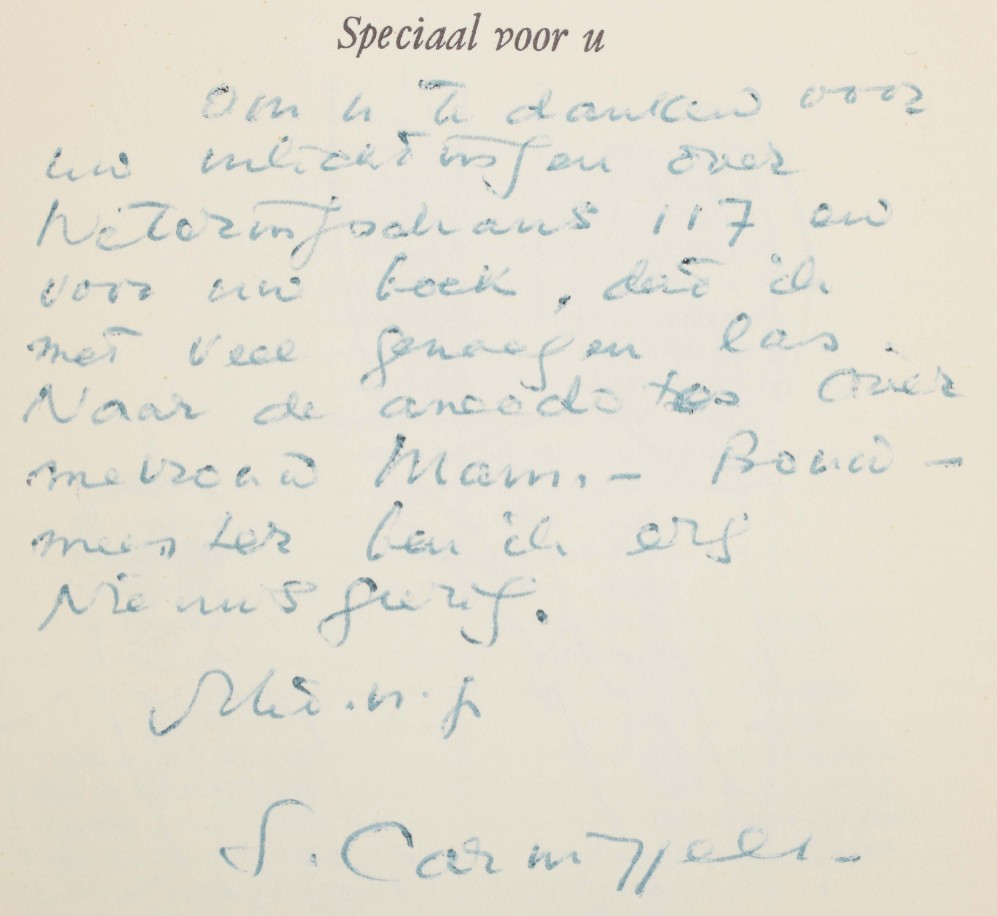 Speciaal voor u
Om u te danken voor
uw inlichtingen over
Weteringschans 117 en
voor uw boek, dat ik
met veel genoegen las.
Naar de anecdotes over
mevrouw Mann.- Bouw-
meester ben ik erg
Nieuwsgierig.
S. Carmiggelt.